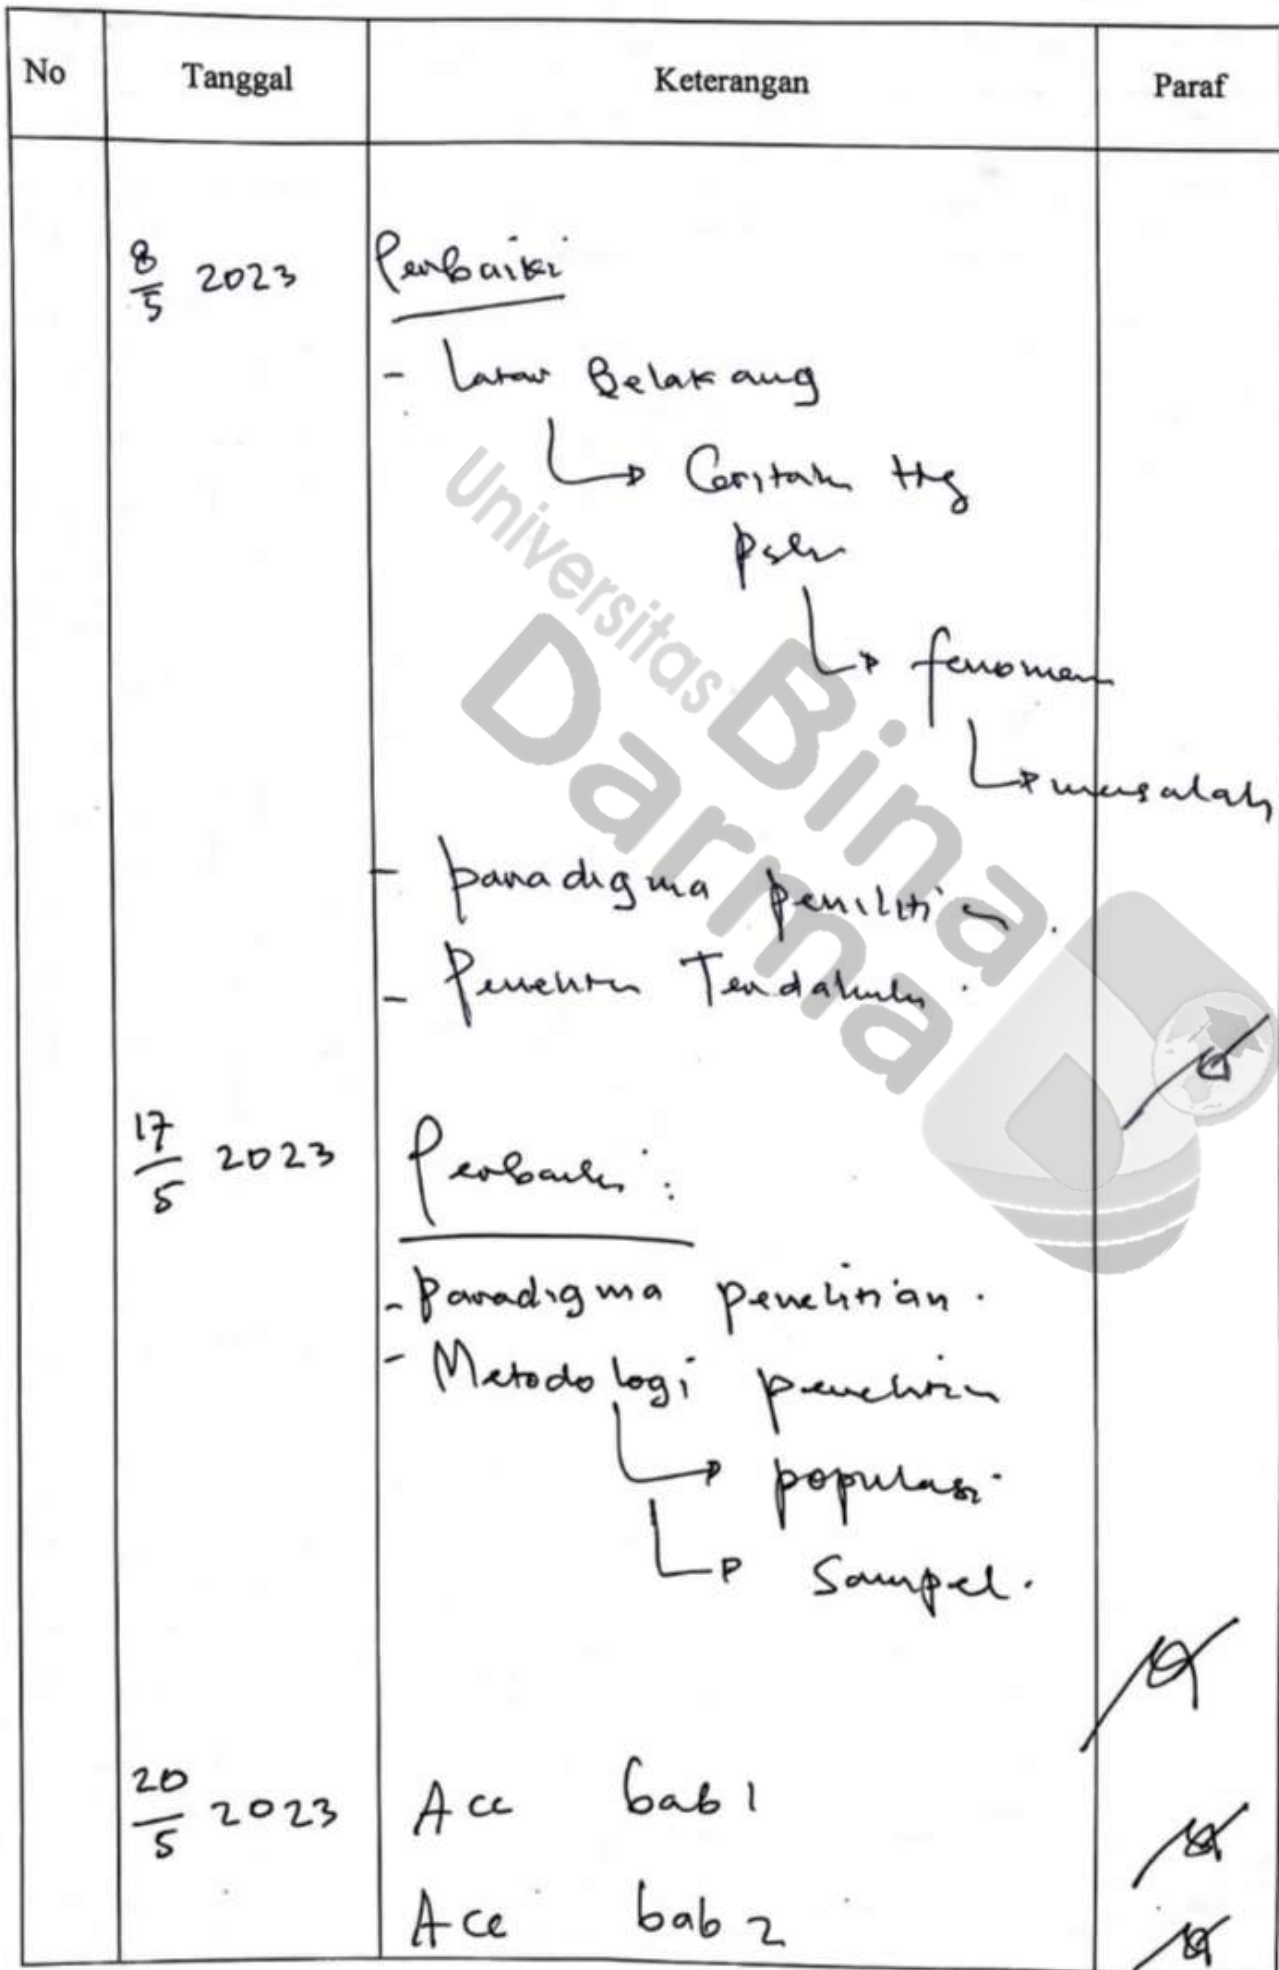 No Tanggal Keterangan Paraf
8/5 2023 Perbaiki
- Latar Belakang
Ceritakan ttg
fenomena
masalah
- paradigma penelitian.
- Penelitian Terdahulu.
17/5 2023 Perbaiki:
- Paradigma penelitian.
- Metodologi penelitian
populasi
Sampel.
20/5 2023 Acc bab 1
Acc bab 2
Universitas
Bina
Darma